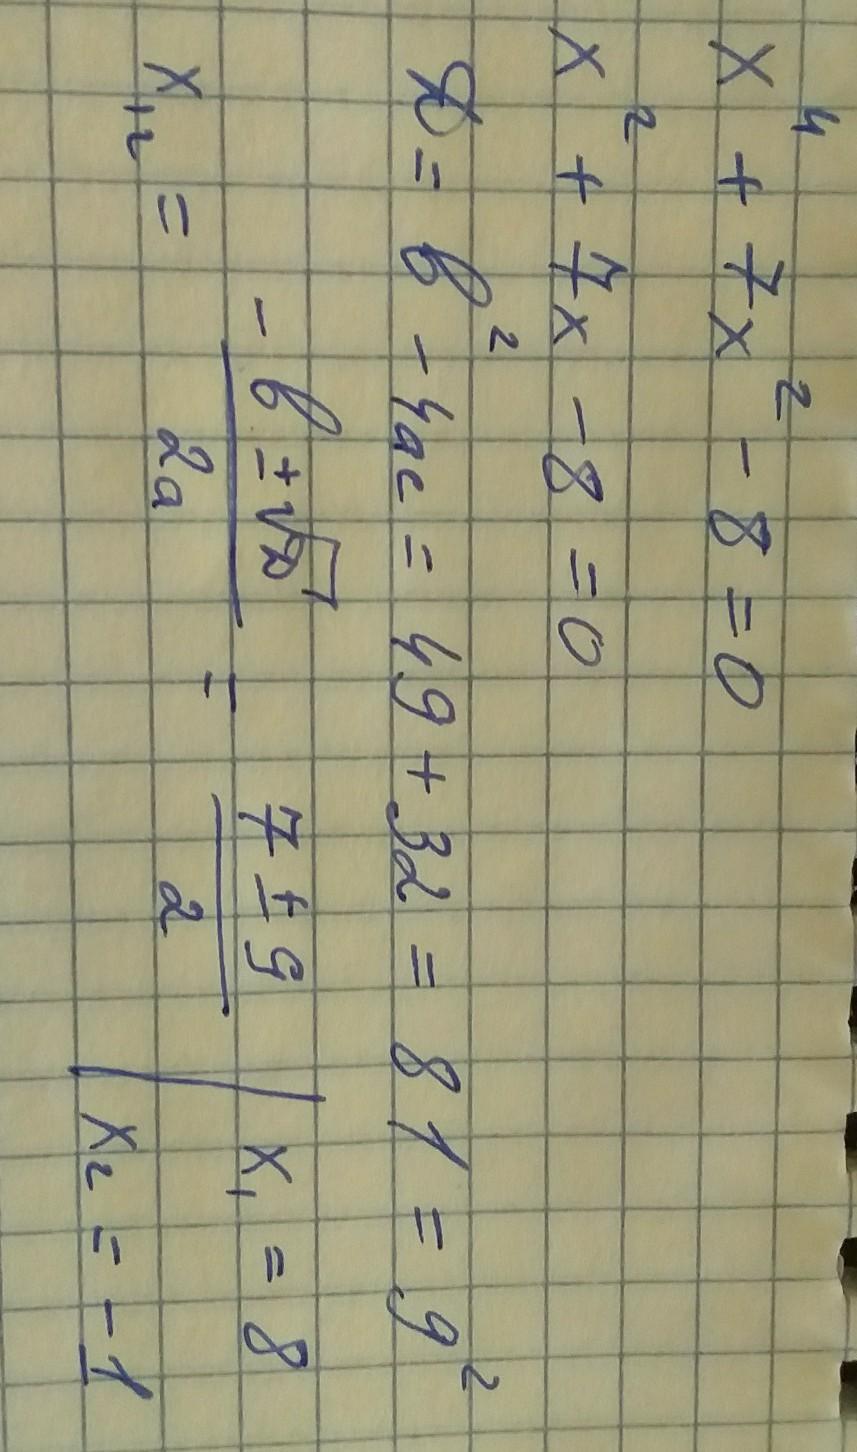 x⁴ + 7x² - 8 = 0
x² + 7x - 8 = 0
D = b² - 4ac = 49 + 32 = 81 = 9²
x₁₂ = (-b ± √D) / 2a = (7 ± 9) / 2 | x₁ = 8
x₂ = -1